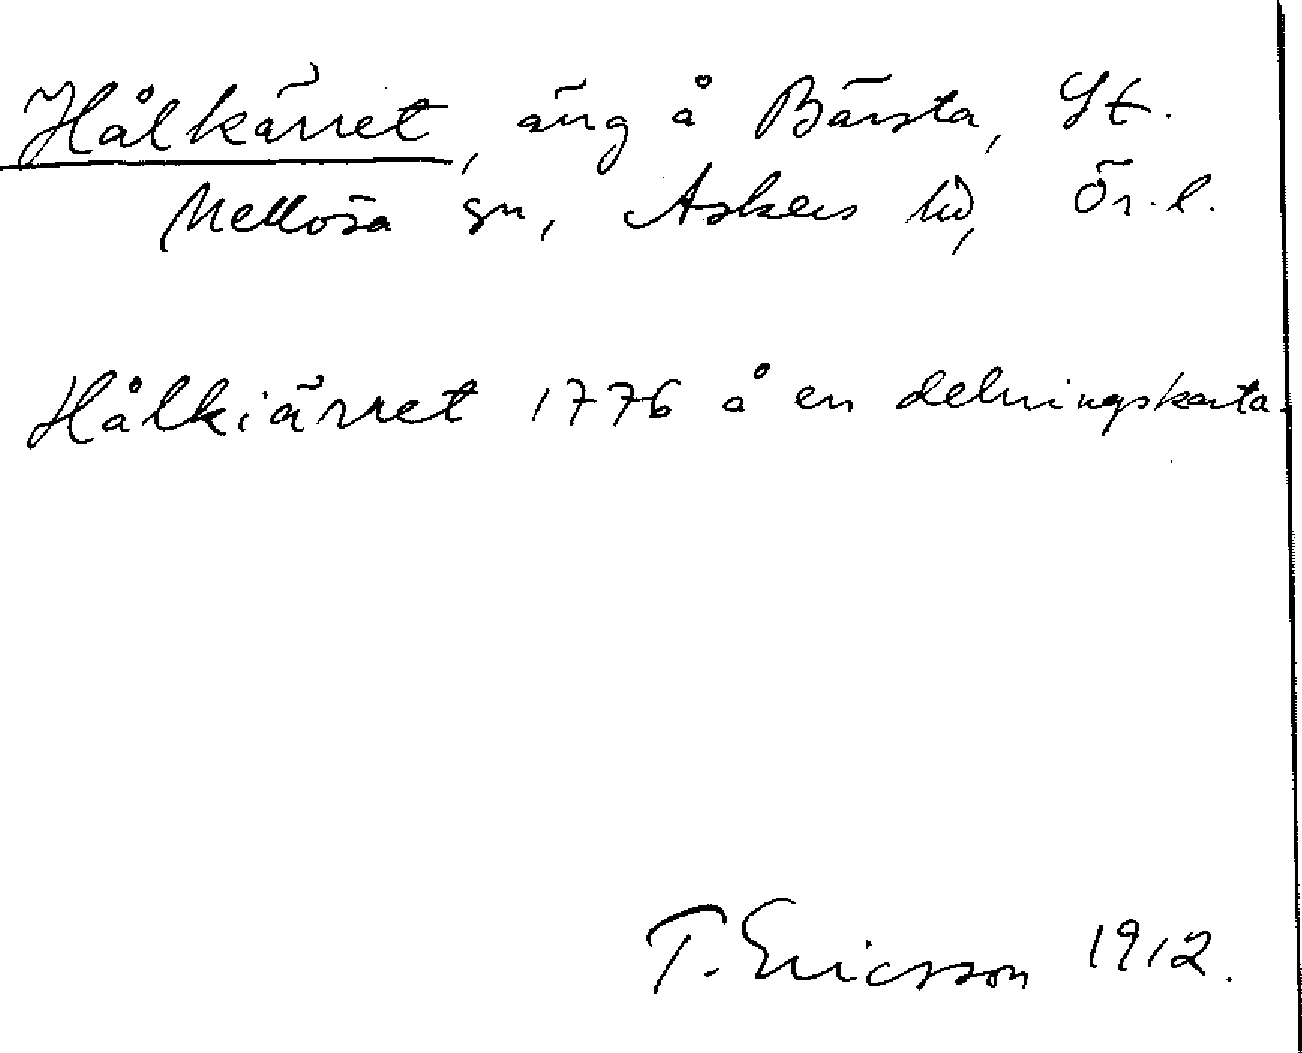 Hålkärret, äng å Bärsta, St.
Mellösa sn, Askers hd, Ör. l.
Hålkiärret 1776 å en delningskarta.
T. Ericsson 1912.